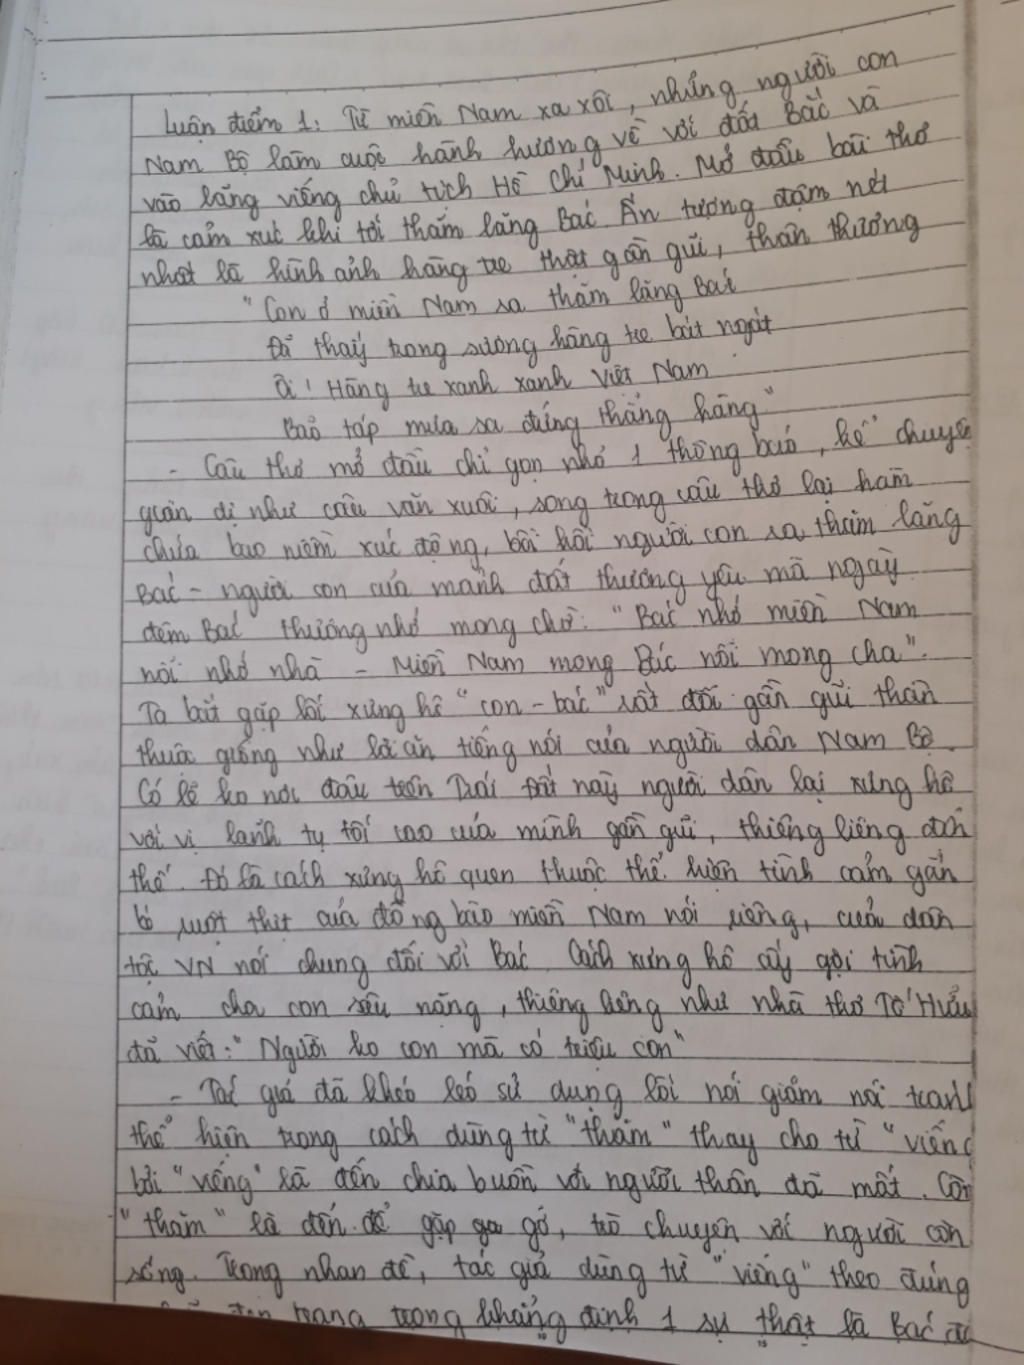 Luận điểm 1: Từ miền Nam xa xôi, những người con
Nam Bộ làm cuộc hành hương về với đất Bắc và
vào lăng viếng chủ tịch Hồ Chí Minh. Mở đầu bài thơ
là cảm xúc khi tới thăm lăng Bác. Ấn tượng đậm nét
nhất là hình ảnh hàng tre thật gần gũi, thân thương
"Con ở miền Nam ra thăm lăng Bác
Đã thấy trong sương hàng tre bát ngát
Ôi! Hàng tre xanh xanh Việt Nam
Bão táp mưa sa đứng thẳng hàng"
- Câu thơ mở đầu chỉ gọn như 1 thông báo, kể chuyện
giản dị như câu văn xuôi, song trong câu thơ lại hàm
chứa bao niềm xúc động, bồi hồi người con ra thăm lăng
Bác - người con của mảnh đất thương yêu mà ngày
đêm Bác thương nhớ mong chờ: "Bác nhớ miền Nam
nỗi nhớ nhà - Miền Nam mong Bác nỗi mong cha".
Ta bắt gặp lối xưng hô "con - bác" rất đỗi gần gũi thân
thuộc giống như lời ăn tiếng nói của người dân Nam Bộ.
Có lẽ ko nơi đâu trên Trái Đất này người dân lại xưng hô
với vị lãnh tụ tối cao của mình gần gũi, thiêng liêng đến
thế. Đó là cách xưng hô quen thuộc thể hiện tình cảm gắn
bó ruột thịt của đồng bào miền Nam nói riêng, của dân
tộc VN nói chung đối với Bác. Cách xưng hô ấy gợi tình
cảm cha con sâu nặng, thiêng liêng như nhà thơ Tố Hữu
đã viết: "Người ko con mà có triệu con"
- Tác giả đã khéo léo sử dụng lối nói giảm nói tránh
thể hiện trong cách dùng từ "thăm" thay cho từ "viếng
bởi "viếng" là đến chia buồn với người thân đã mất. Còn
"thăm" là đến để gặp gỡ, trò chuyện với người còn
sống. Trong nhan đề, tác giả dùng từ "viếng" theo đúng
trang trọng khẳng định 1 sự thật là Bác đã